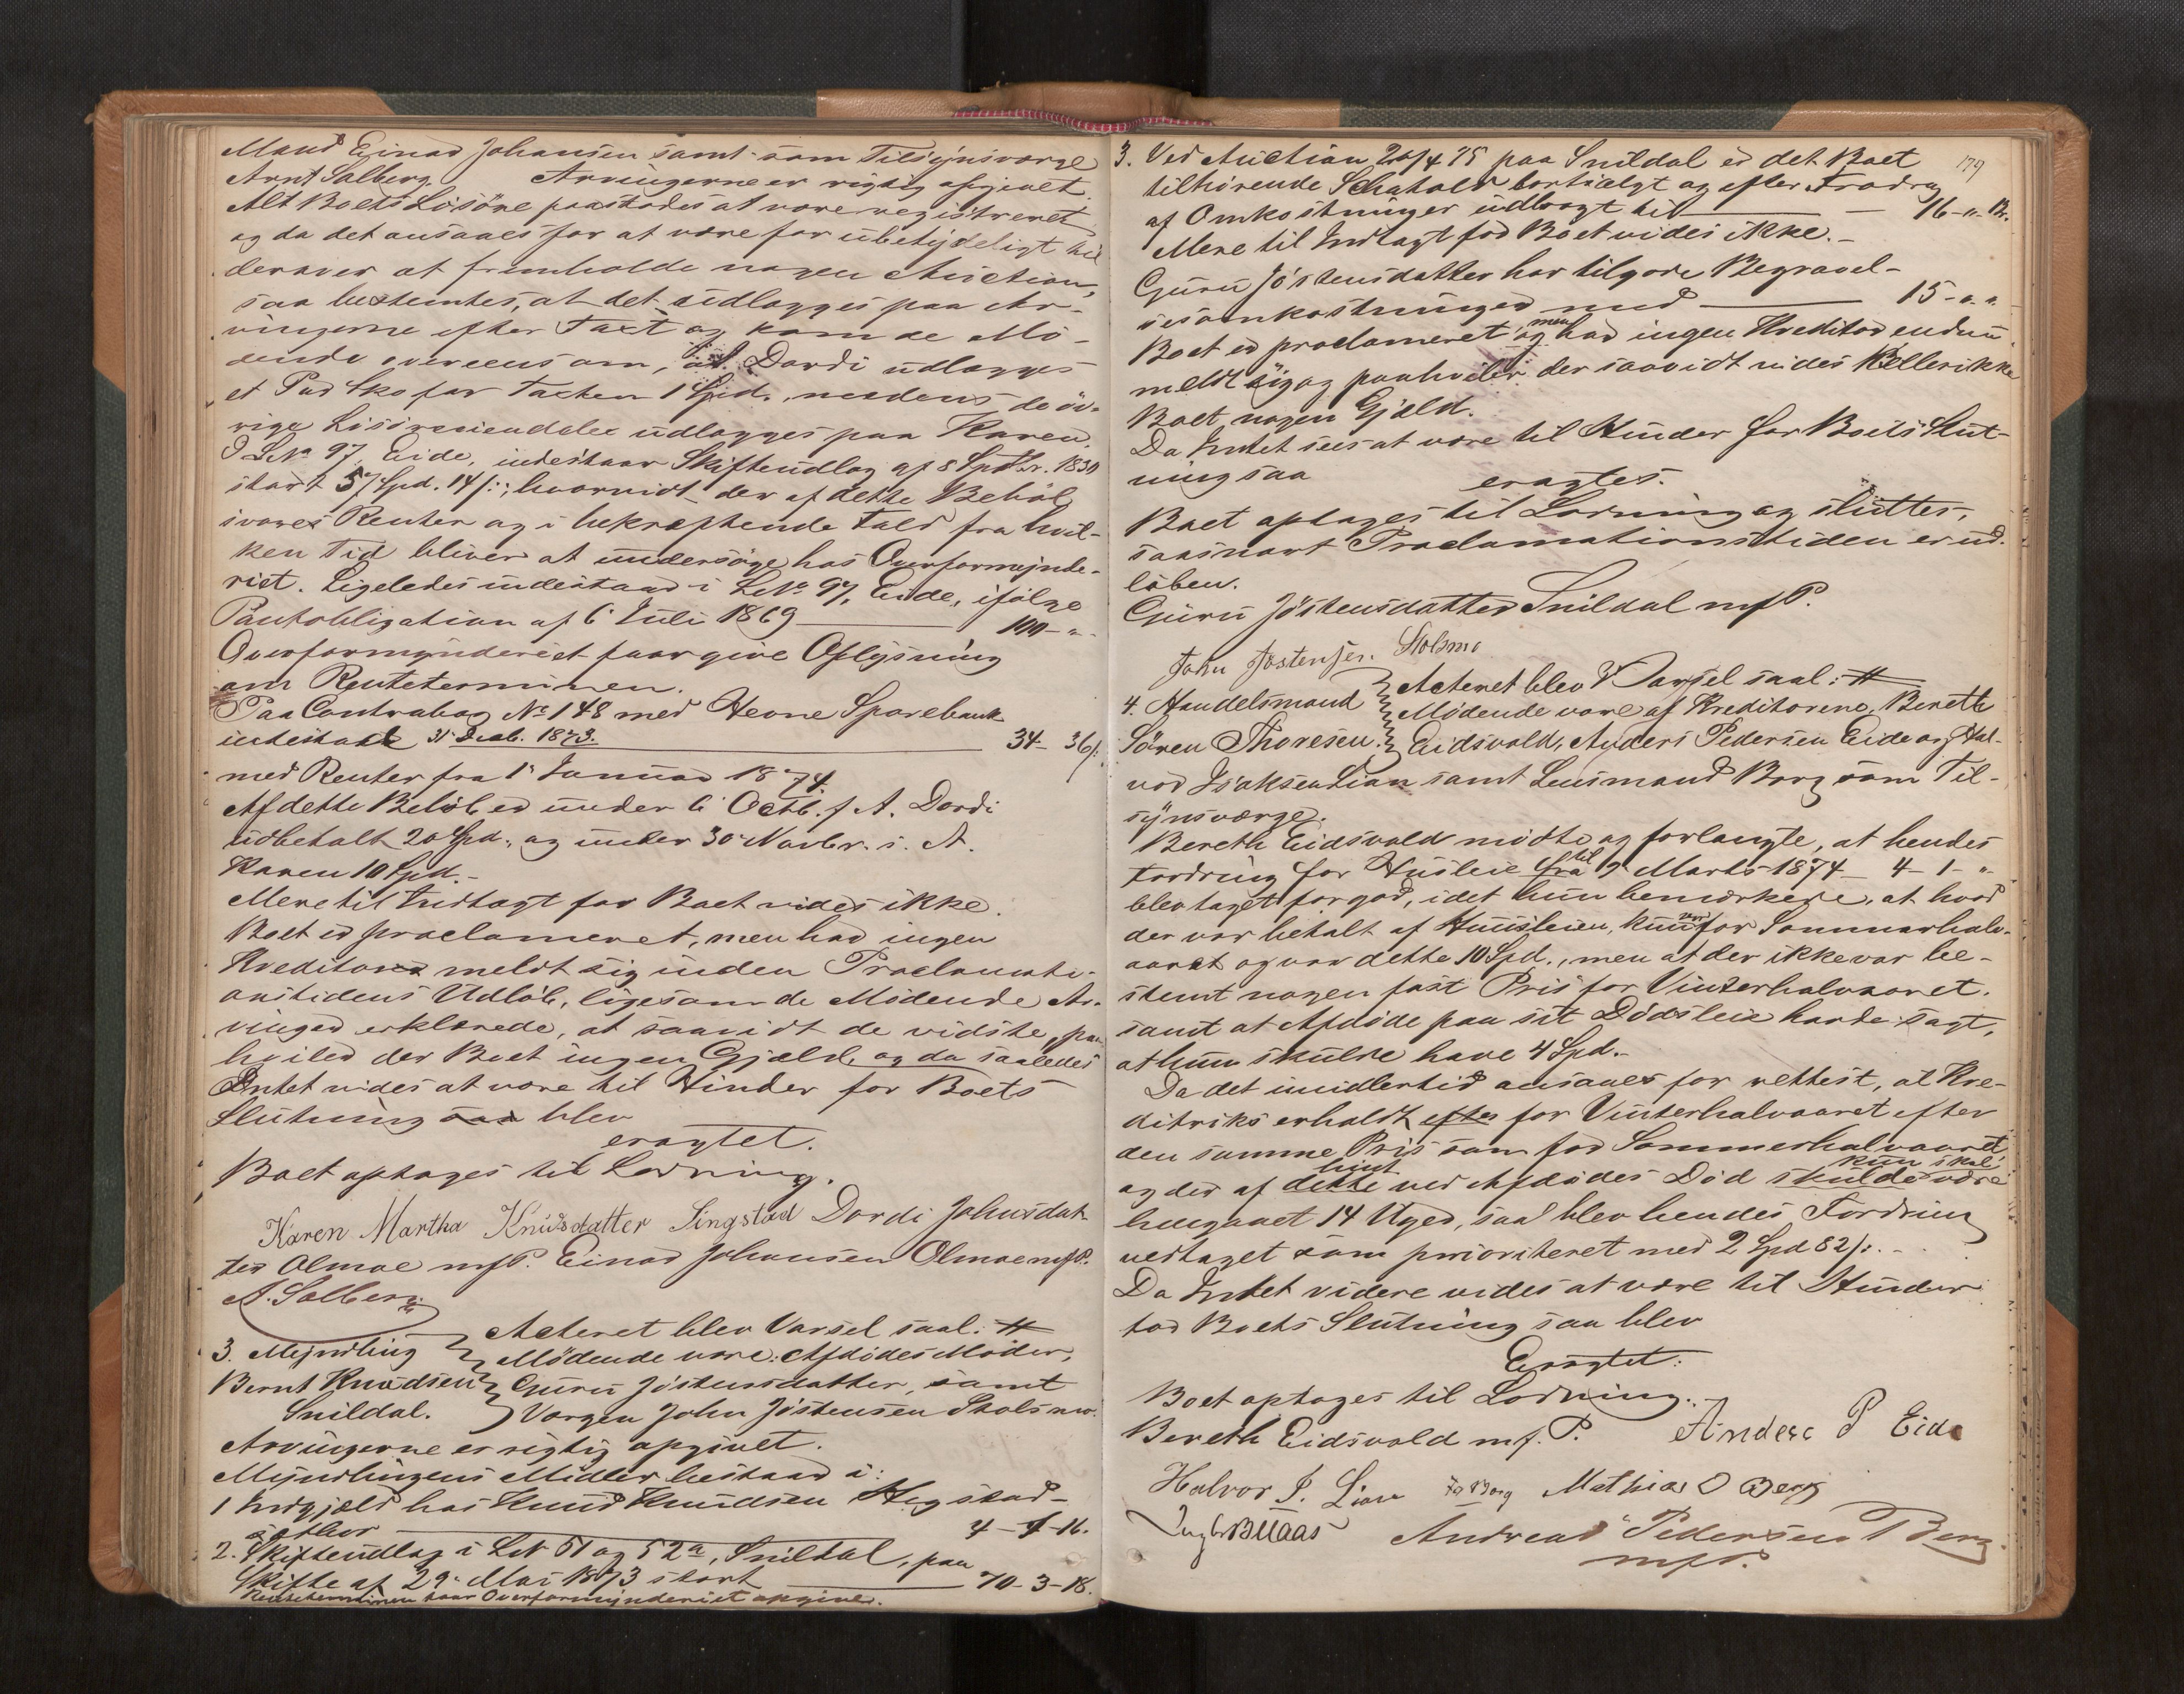 Mand Einar Johansen samt som Tilsynsværge
Arnt Solberg. Arvingerne er rigtig opgivet.
Alt Boets Løsøre paastodes at være registreret
og da det ansaaes for at være for ubetydeligt til
derover at fremholde nogen Auction,
saa bestemtes, at det udlægges paa Ar-
vingerne efter Taxt og kom de Mö-
dende overeens om, at Dordi udlægges
et Par Sko for Taxten 1 Spd., medens de öv-
rige Lösöreiendele udlægges paa Karen.
I LNo 97, Eide, indestaar Skifteudlæg af 8 Septbr. 1830
stort 57 Spd. 14 s:, hvorvidt der af dette Belöb
svares Renter og i bekræftende Fald fra hvil-
ken Tid bliver at undersöge hos Overformynde-
riet. Ligeledes indestaar i LNo 97, Eide, ifölge
Pantobligation af 6 Juli 1869 — 100 - "
Overformynderiet faar give Oplysning
om Renteterminen.
Paa Contrabog No 148 med Hevne Sparebank
indestaar 31 Decb. 1873. — 34 - 36 s.
med Renter fra 1 Januar 1874.
Af dette Belöb er under 6 Octb. f. A. Dordi
udbetalt 20 Spd., og under 30 Novbr. s. A.
Karen 10 Spd.-
Mere til Indtægt for Boet vides ikke.
Boet er proclameret, men har ingen
Kreditor meldt sig inden Proclamati-
onstidens Udlöb, ligesom de Mödende Ar-
vinger erklærede, at saavidt de vidste, paa-
hviler der Boet ingen Gjæld, og da saaledes
Intet vides at være til Hinder for Boets
Slutning saa blev
eragtet.
Boet optages til Lodning.
Karen Martha Knudsdatter Singstad Dordi Johnsdat-
ter Olmoe m.f.P. Einar Johansen Olmoe m.f.P.
A. Solberg
3. Myndling Acteret blev Varsel saal: #
Bernt Knudsen Mödende vare: Afdödes Moder,
Snildal. Guru Jöstensdatter, samt
Værgen John Jöstensen Stolsmo.
Arvingerne er rigtig opgivet.
Myndlingens Midler bestaar i:
1 Indgjæld hos Knud Knudsen Hegstad-
sæther — 4 - 1 - 16.
2. Skifteudlæg i LN 51 og 52a, Snildal, paa
Skifte af 29 Mai 1873 stort — 70 - 3 - 18.
Renteterminen faar Overformynderiet opgive.
179
3. Ved Auction 26/4 75 paa Snildal er det Boet
tilhörende Schatoll bortsælgt og efter Fradrag
af Omkostninger udbragt til — 16 - " - 12.
Mere til Indtægt for Boet vides ikke.-
Guru Jöstensdatter har tilgode Begravel-
sesomkostninger med — 15 - " - "
Boet er proclameret, men har ingen Kreditor endnu
meldt sig og paahviler der saavidt vides hellerikke
Boet nogen Gjæld.
Da Intet sees at være til Hinder for Boets Slut-
ning saa
eragtes.
Boet optages til Lodning og sluttes,
saasnart Proclamationstiden er ud-
löben.
Guru Jöstensdatter Snildal m.f.P.
John Jöstensen Stolsmo
4. Handelsmand Acteret blev Varsel saal: #
Sören Thoresen. Mödende vare af Kreditorerne, Bereth
Eidsvold, Anders Pedersen Eide og Hal-
vor Isaksen Lian samt Lensmand Borg som Til-
synsværge.
Bereth Eidsvold mödte og forlangte, at hendes
Fordring for Husleie fra til 7 Marts 1874 — 4 - 1 - "
blev taget for god, idet hun bemærkede, at hvad
der var betalt af Huusleien, kun var for Sommerhalv-
aaret og var dette 10 Spd., men at der ikke var be-
stemt nogen fast Pris for Vinterhalvaaret.
samt at Afdöde paa sit Dödsleie havde sagt,
at hun skulde have 4 Spd.-
Da det imidlertid ansaaes for rettest, at Kre-
ditriks erholdt efter for Vinterhalvaaret efter
den samme Pris som for Sommerhalvaaret,
og der af dette hint ved Afdödes Död skulde kun skal være
hengaaet 14 Uger, saa blev hendes Fordring
vedtaget som prioriteret med 2 Spd 82 s. -
Da Intet videre vides at være til Hinder
for Boets Slutning saa blev
Eragtet:
Boet optages til Lodning.-
Bereth Eidsvold m.f.P. Anders P Eide
Halvor I. Lian Borg Mathias O Berg
B Maas Andreas Pedersen Berg
m.f.P.